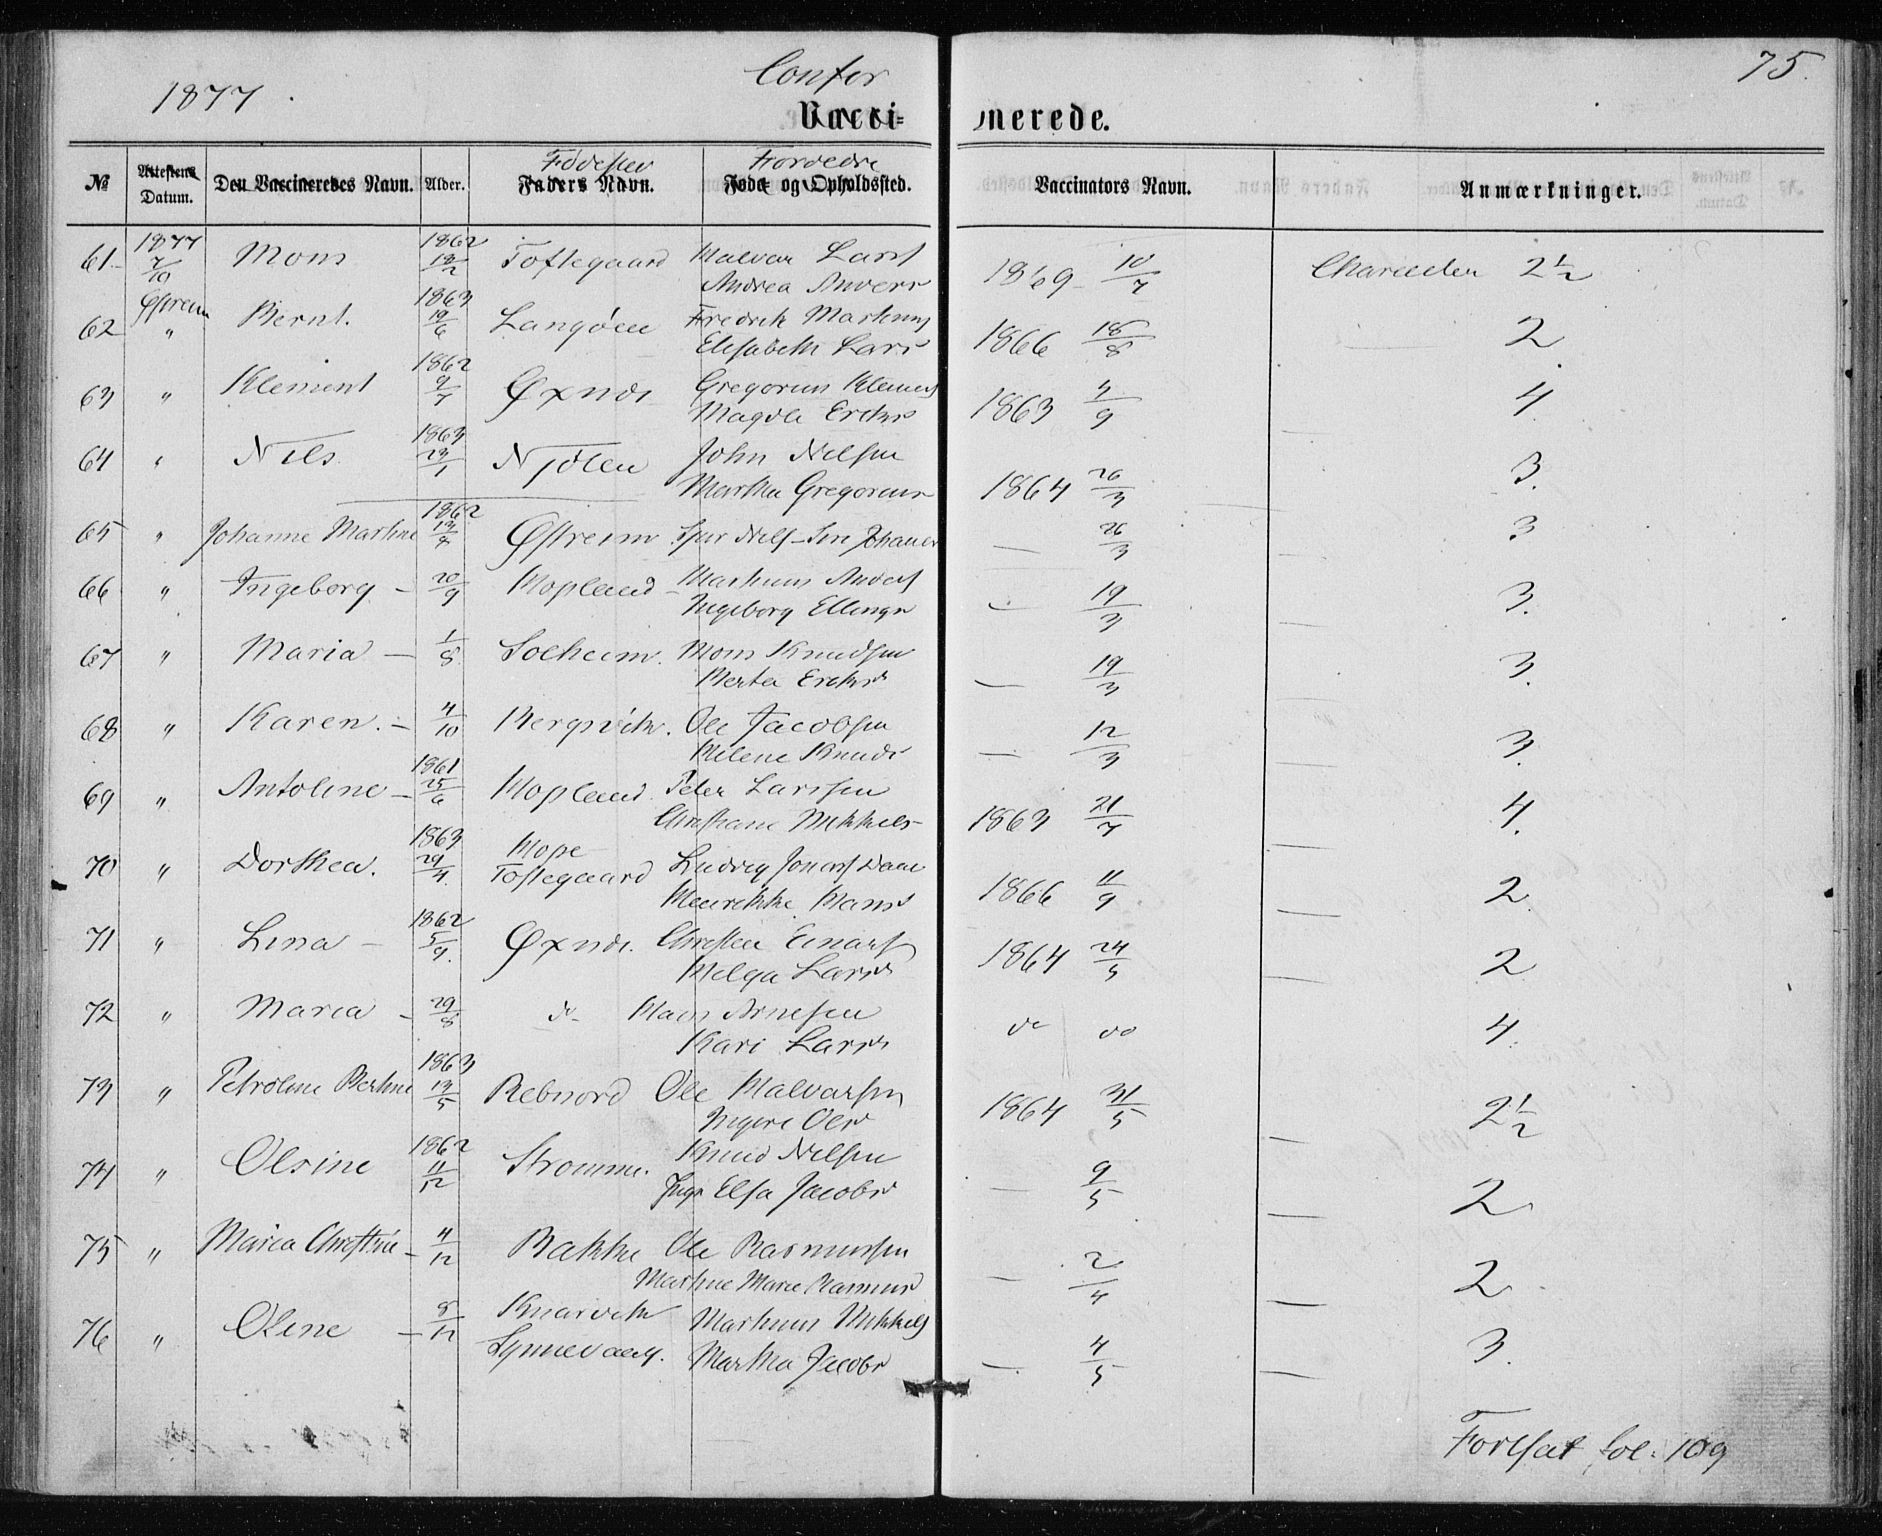 1877.
Confor
75.
Vacci- nerede.
Fødested Forældre
№ Attestens Datum. Den Vaccineredes Navn. Alder. Faders Navn. Føde og Opholdssted. Vaccinators Navn. Anmærkninger.
61 1877 7/10 Mons 1862 Toftegaard Halvar Larss 1869 10/7 Characten 2 1/2
Andrea Anders
62 Østreim " Bernt. 1863 19/6 Langøen Fredrik Markuss 1866 18/8 2
Elisabeth Lars
63 " Klement 1862 9/7 Øxnds Gregorius Klemens 1863 4/9 4
Magdle Eriks
64 " Nils 1863 23/1 Njølen John Nilsen 1864 26/3 3.
Martha Gregorius
65 " Johanne Martine 1862 Østreim Nils 26/3 3
66 " Ingeborg - 20/9 Hopland Markuus Anders - 19/3 3.
Ingeborg Ellings
67 " Maria - 1/8 Solheim. Mons Knudsen - 19/3 3.
Berta Eriks
68 " Karen. - 4/10 Bergsvik. Ole Jacobsen - 12/3 3.
Helene Knuds
69 " Antoline - 1861 25/6 Hopland Peter Larssen 1863 21/7 4.
Christiane Mikkels
70 " Dorthea. 1863 29/4 Hope Toftegaard Ludvig Jonass Daae 1866 11/9 2
Henrikke Hans
71 " Lina - 1862 5/9. Øxnds. Christen Einars 1864 24/5 2
Helga Lars
72 " Maria - 29/8 do Hans Arnesen do do 4.
Kari Lars
73 " Petroline Bertine 1863 13/5 Rebnord Ole Halvarsen 1864 31/5 2 1/2
Ingeri Ols
74 " Olsine 1862 11/12 Stromme. Knud Nilsen - 9/5 2
Elsa Jacobs
75 " Maria Christine - 4/12 Bakke Ole Rasmussen - 2/4 2
Martine Marie Rasmus
76 " Oline - 8/12 Knarvik Markuus Mikkels - 4/5 3.
Lynnevaag. Martha Jacobs
Fortsat fol: 109